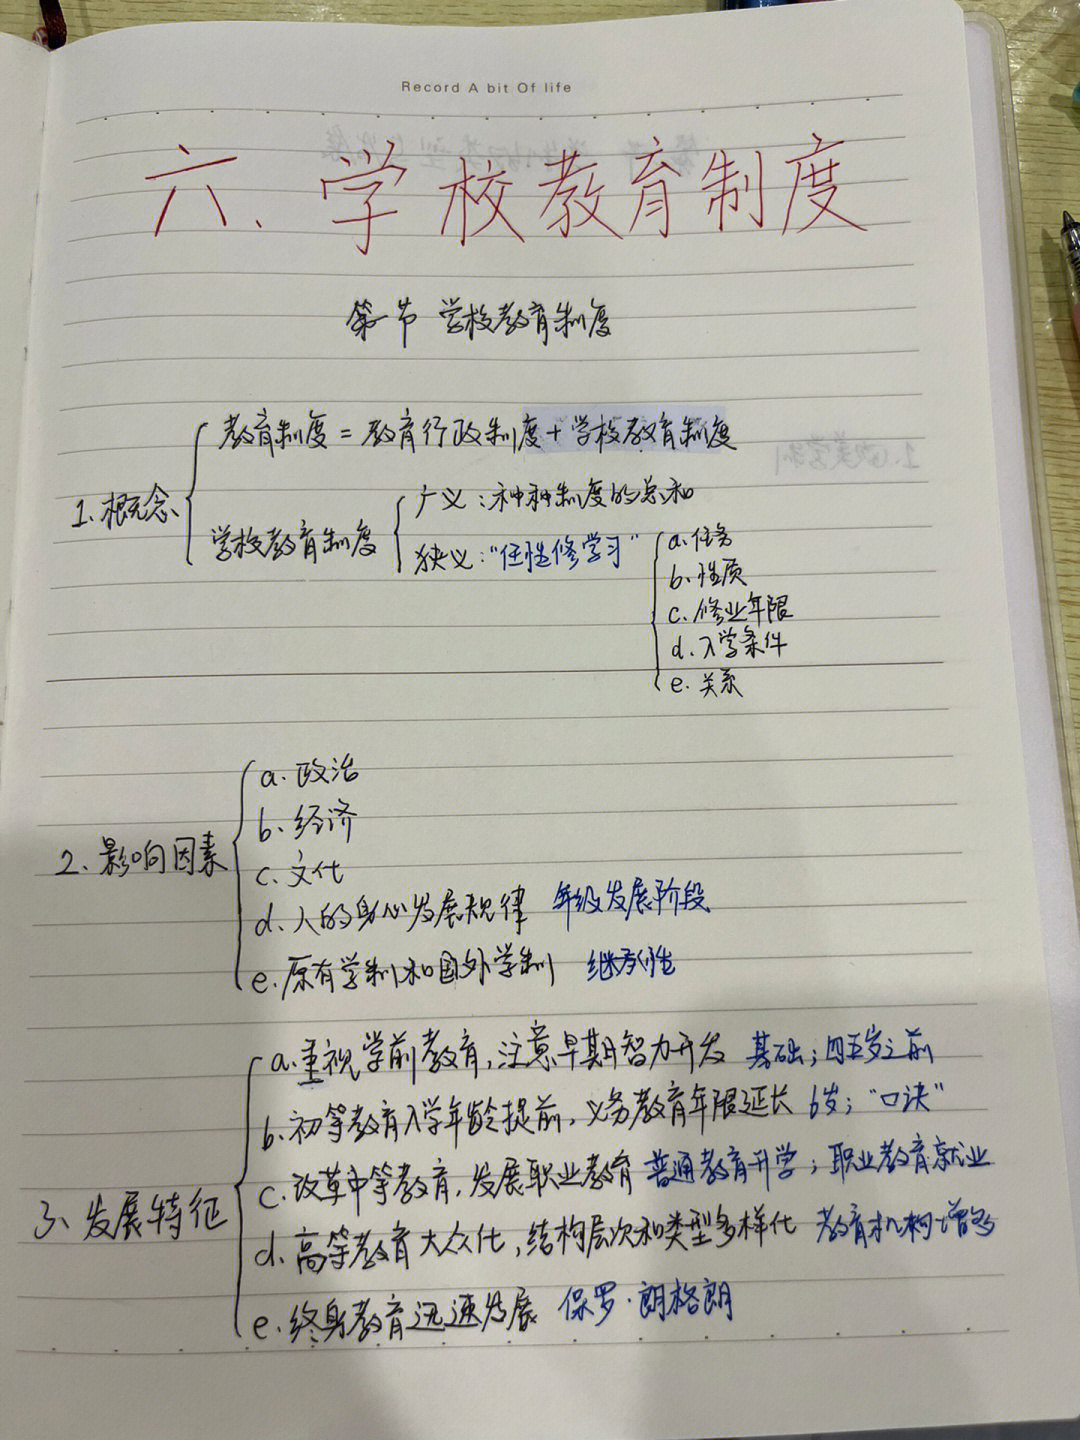 Record A bit Of life
六、学校教育制度
第一节 学校教育制度
1、概念
教育制度 = 教育行政制度 + 学校教育制度
学校教育制度
广义：种种制度的总和
狭义：“任性修学习”
a. 任务
b. 性质
c. 修业年限
d. 入学条件
e. 关系
2、影响因素
a. 政治
b. 经济
c. 文化
d. 人的身心发展规律 年级发展阶段
e. 原有学制和国外学制 继承性
3、发展特征
a. 重视学前教育，注意早期智力开发 基础；四五岁之前
b. 初等教育入学年龄提前，义务教育年限延长 6岁；“口诀”
c. 改革中等教育，发展职业教育 普通教育升学；职业教育就业
d. 高等教育大众化，结构层次和类型多样化 教育机构增多
e. 终身教育迅速发展 保罗·朗格朗